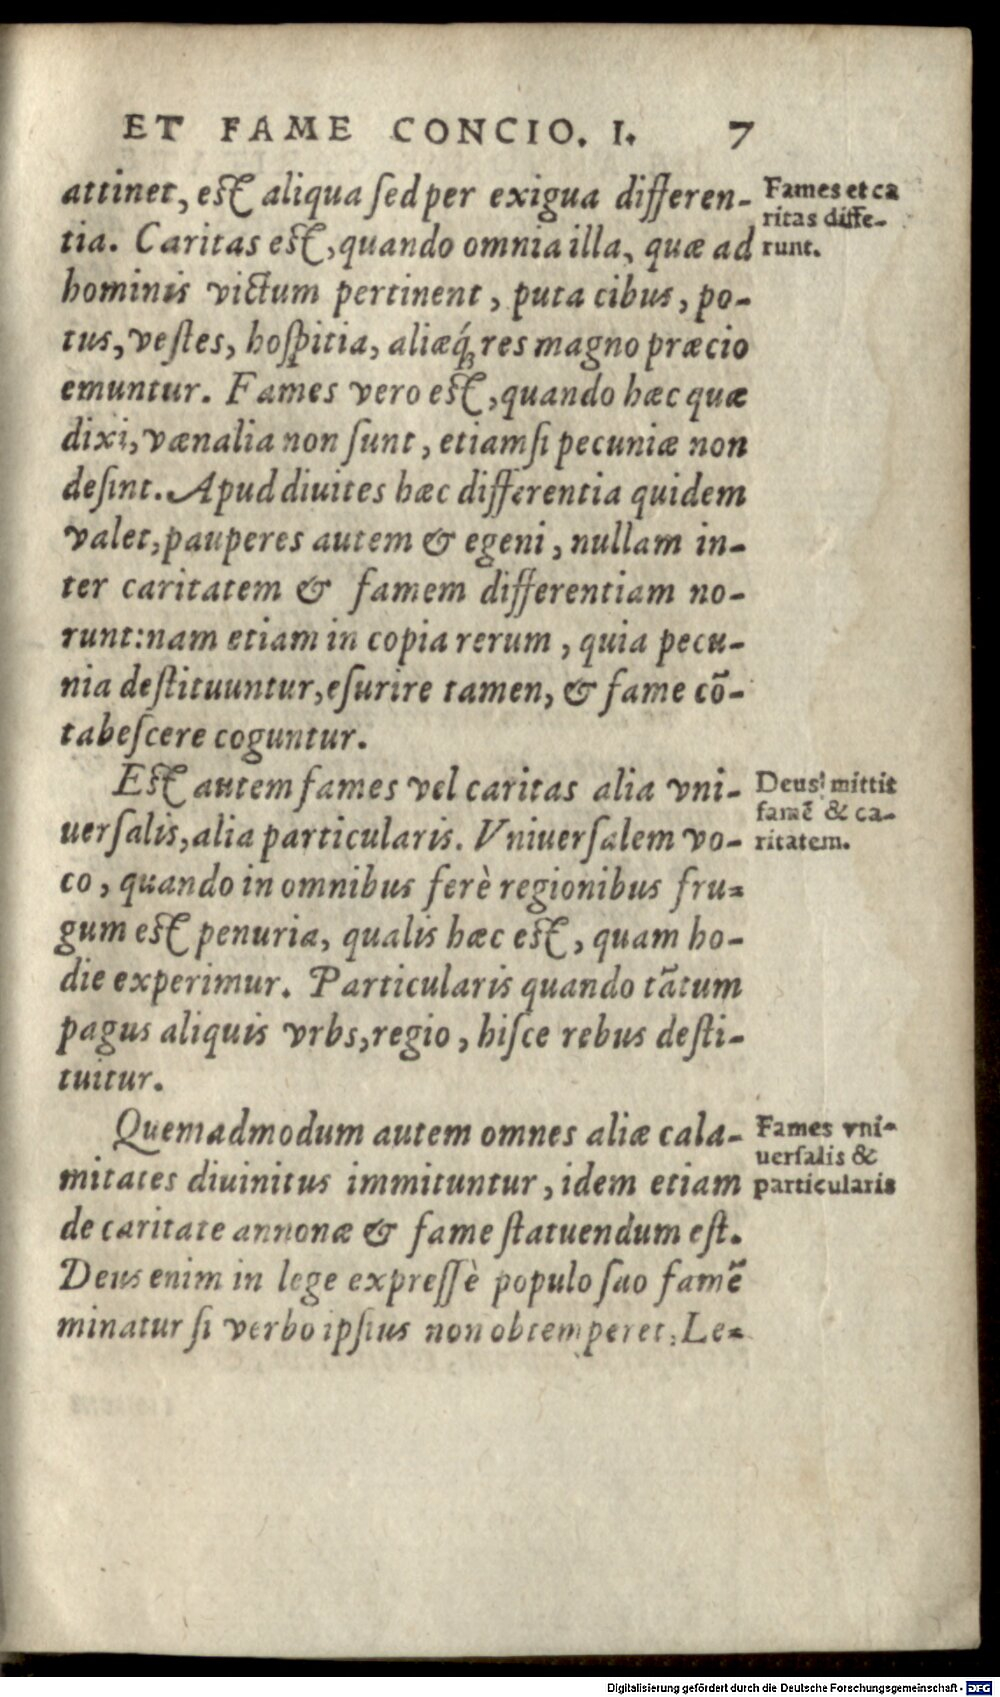 ET FAME CONCIO. I. 7
attinet, est aliqua sed per exigua differen-
tia. Caritas est, quando omnia illa, quæ ad
hominis victum pertinent, puta cibus, po-
tus, vestes, hospitia, aliæq́; res magno præcio
emuntur. Fames vero est, quando hæc quæ
dixi, vænalia non sunt, etiamsi pecuniæ non
desint. Apud diuites hæc differentia quidem
valet, pauperes autem & egeni, nullam in-
ter caritatem & famem differentiam no-
runt: nam etiam in copia rerum, quia pecu-
nia destituuntur, esurire tamen, & fame cõ-
tabescere coguntur.
Est autem fames vel caritas alia vni-
uersalis, alia particularis. Vniuersalem vo-
co, quando in omnibus ferè regionibus fru-
gum est penuria, qualis hæc est, quam ho-
die experimur. Particularis quando tãtum
pagus aliquis vrbs, regio, hisce rebus desti-
tuitur.
Quemadmodum autem omnes aliæ cala-
mitates diuinitus immituntur, idem etiam
de caritate annonæ & fame statuendum est.
Deus enim in lege expressè populo suo famẽ
minatur si verbo ipsius non obtemperet, Le-
Fames et ca
ritas diffe-
runt.
Deus mittit
famẽ & ca-
ritatem.
Fames vni-
uersalis &
particularis
Digitalisierung gefördert durch die Deutsche Forschungsgemeinschaft - DFG